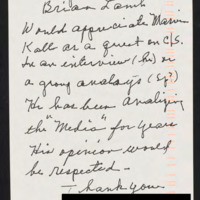 Brian Lamb
Would appreciate Marvin
Kalb as a guest on C.S.
In an interview (his) or
a group analysis (Sy?)
He has been analizing
the "Media" for years
His opinion would
be respected -
Thank you